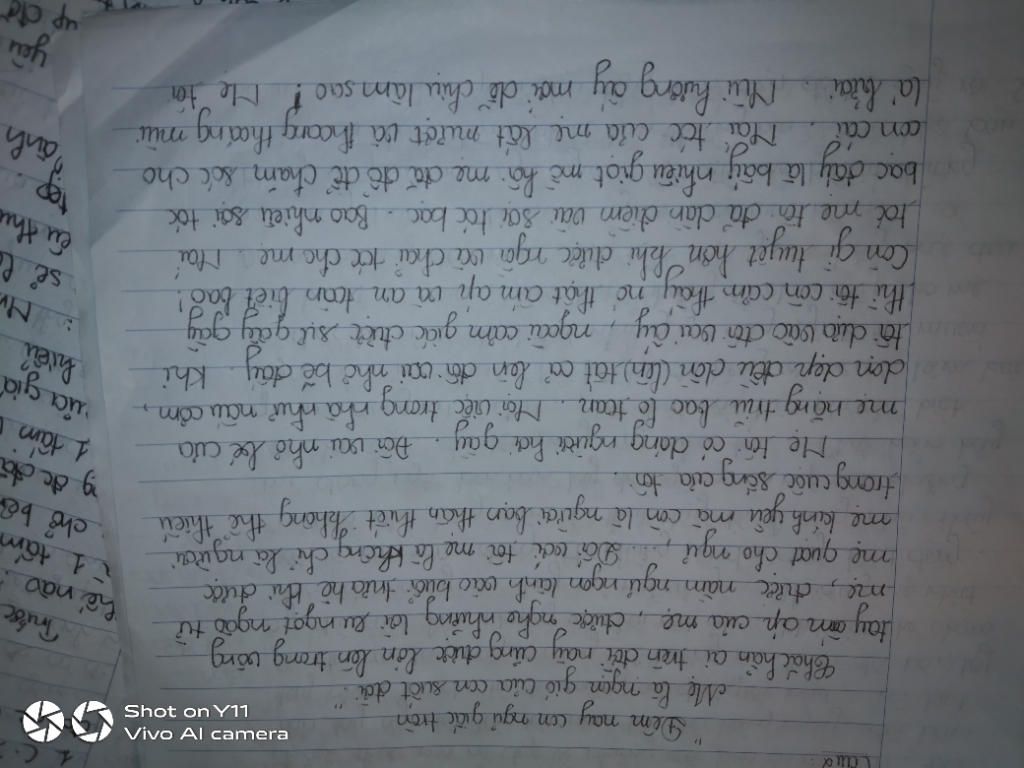 Câu 2
"Đêm nay con ngủ giấc tròn
Mẹ là ngọn gió của con suốt đời."
Chắc hẳn ai trên đời này cũng được lớn lên trong vòng
tay ấm áp của mẹ, được nghe những lời ru ngọt ngào từ
mẹ, được nằm ngủ ngon lành vào buổi trưa hè khi được
mẹ quạt cho ngủ, Đối với tôi mẹ là không chỉ là người
mẹ kính yêu mà còn là người bạn thân thiết không thể thiếu
trong cuộc sống của tôi.
Mẹ tôi có dáng người hơi gầy. Đôi vai nhỏ bé của
mẹ nặng trĩu bao lo toan. Mọi việc trong nhà như nấu cơm,
dọn dẹp đều dồn (lên) tất cả lên đôi vai nhỏ bé đấy. Khi
tôi dựa vào đôi vai ấy, ngoài cảm giác được sự gầy gầy
thì tôi còn cảm thấy nó thật ấm áp và an toàn biết bao!
Còn gì tuyệt hơn khi được ngồi và chải tóc cho mẹ. Mái
tóc mẹ tôi đã dần điểm vài sợi tóc bạc. Bao nhiêu sợi tóc
bạc đấy là bấy nhiêu giọt mồ hôi mẹ đã đổ để chăm sóc cho
con cái. Mái tóc của mẹ rất mượt và thoang thoảng mùi
lá bưởi. Mùi hương ấy mới dễ chịu làm sao! Mẹ tôi
Trước
yêu
ảnh
hiểu
Shot on Y11
Vivo AI camera